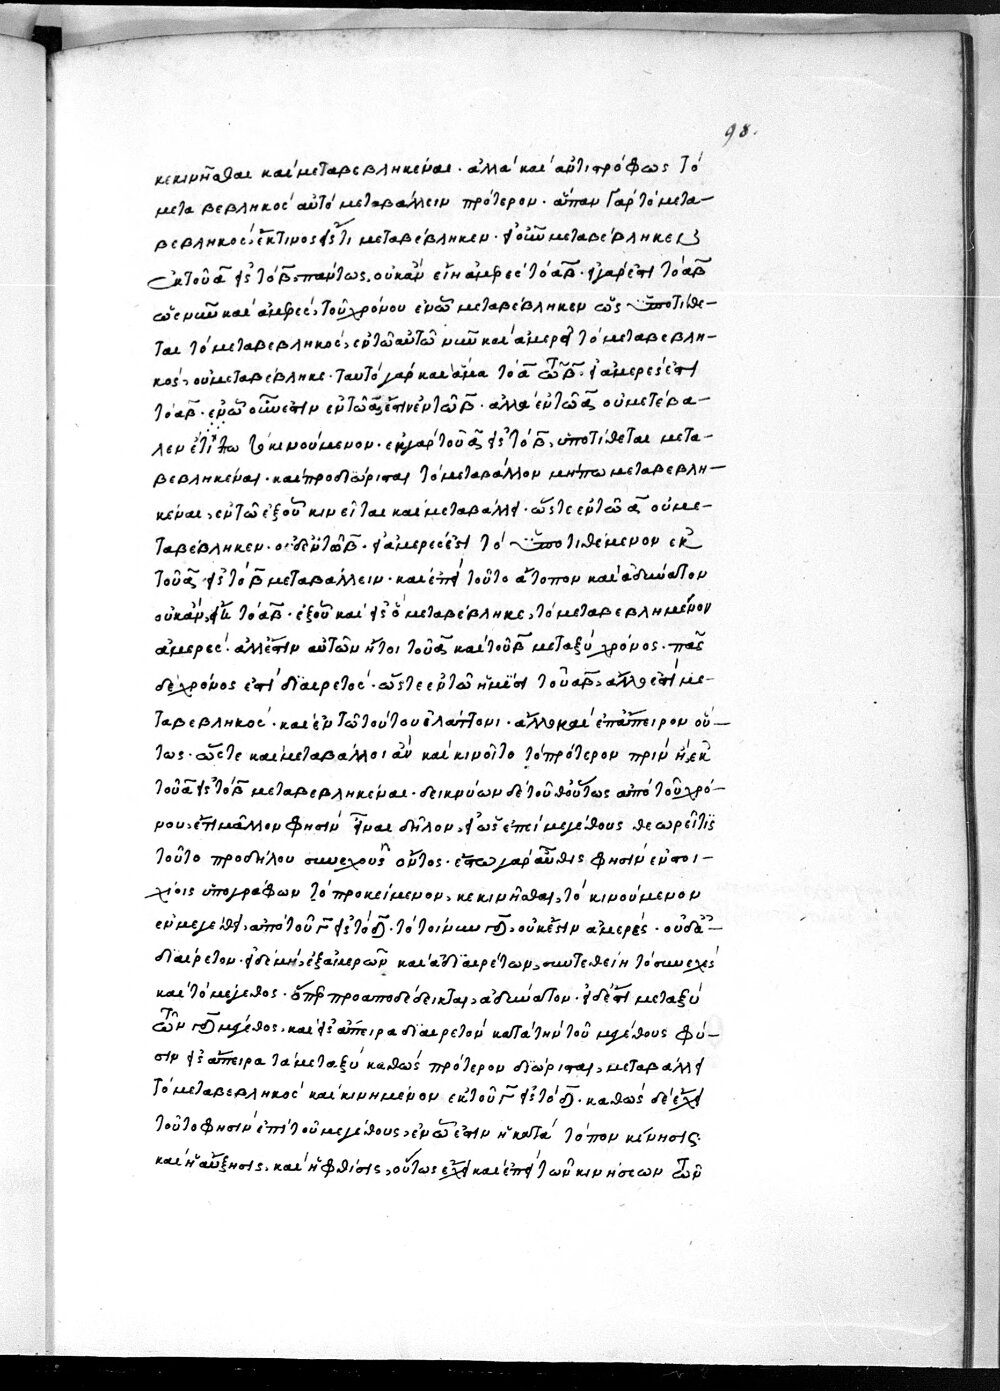 98.
κεκινῆσθαι καὶ μεταβεβληκέναι· ἀλλὰ καὶ ἀντιστρόφως τὸ
μεταβεβληκὸς αὐτὸ μεταβάλλειν πρότερον· ἅπαν γὰρ τὸ μετα-
βεβληκὸς, ἔκ τινος εἴς τι μεταβέβληκεν· εἰ οὖν μεταβέβληκεν
ἐκ τοῦ α εἰς τὸ β, πάντως οὐκ ἂν εἴη ἀμερὲς τὸ αβ· εἰ γάρ ἐστι τὸ αβ
ὡς νῦν καὶ ἀμερὲς τοῦ χρόνου ἐν ᾧ μεταβέβληκεν ὡς ὑποτίθε-
ται τὸ μεταβεβληκὸς, ἐν τῷ αὐτῷ νῦν καὶ ἀμερεῖ τὸ μεταβεβλη-
κὸς, οὐ μεταβέβληκε· ταυτὸ γὰρ καὶ ἅμα τὸ α τῷ β· εἰ ἀμερές ἐστι
τὸ αβ· ἐν ᾧ οὖν ἐστὶν ἐν τῷ α, ἔστιν ἐν τῷ β· ἀλλ' ἐν τῷ α οὐ μετέβα-
λεν ἔτι πω τὸ κινούμενον· ἐκ γὰρ τοῦ α εἰς τὸ β, ὑποτίθεται μετα-
βεβληκέναι· καὶ προσδιώρισται τὸ μεταβάλλον μήπω μεταβεβλη-
κέναι, ἐν τῷ ἐξ οὗ κινεῖται καὶ μεταβάλλει· ὥστε ἐν τῷ α οὐ με-
ταβέβληκεν· οὐδ' ἐν τῷ β· εἰ ἀμερές ἐστι τὸ ὑποτιθέμενον ἐκ
τοῦ α εἰς τὸ β μεταβάλλειν· καὶ ἐπεὶ τοῦτο ἄτοπον καὶ ἀδύνατον
οὐκ ἂν εἴη τὸ αβ· ἐξ οὗ καὶ εἰς ὃ μεταβέβληκε, τὸ μεταβεβλημένον
ἀμερές· ἀλλ' ἔστιν αὐτῶν ἤτοι τοῦ α καὶ τοῦ β μεταξὺ χρόνος· πᾶς
δὲ χρόνος ἐστὶ διαιρετός· ὥστε ἐν τῷ ἡμίσει τοῦ αβ, ἄλλο ἐστὶ με-
ταβεβληκός· καὶ ἐν τῷ τούτου ἐλάττονι· ἄλλο καὶ ἐπάπειρον οὕ-
τως· ὥστε καὶ μεταβάλλοι ἂν καὶ κινοῖτο τὸ πρότερον πρὶν ἢ ἐκ
τοῦ α εἰς τὸ β μεταβεβληκέναι· δεικνύων δὲ τοῦθ' οὕτως ἀπὸ τοῦ χρό-
νου, ἔτι μᾶλλον φησὶν εἶναι δῆλον, εἰ ὡς ἐπὶ μεγέθους θεωρεῖ τις
τοῦτο προδήλου συνεχοῦς ὄντος· ἔστω γὰρ αὖθις φησὶν ἐν στοι-
χείοις ὑπογράφων τὸ προκείμενον, κεκινῆσθαι, τὸ κινούμενον
ἐν μεγέθει, ἀπὸ τοῦ γ εἰς τὸ δ· τὸ τοίνυν γδ, οὐκ ἔστιν ἀμερές· οὐδ' ἀ-
διαίρετον· εἰ δὲ μὴ, ἐξ ἀμερῶν καὶ ἀδιαιρέτων, συντεθείη τὸ συνεχές
καὶ τὸ μέγεθος· ὅπερ προαποδέδεικται, ἀδύνατον· εἰ δ' ἔστι μεταξὺ
τῶν γδ μέγεθος, καὶ εἰς ἄπειρα διαιρετὸν κατὰ τὴν τοῦ μεγέθους φύ-
σιν εἰς ἄπειρα τὰ μεταξὺ καθὼς πρότερον διώρισται, μεταβάλλει
τὸ μεταβεβληκὸς καὶ κινημένον ἐκ τοῦ γ εἰς τὸ δ· καθὼς δὲ ἔχει
τοῦτο φησὶν ἐπὶ τοῦ μεγέθους, ἐν ᾧ ἐστὶν ἡ κατὰ τόπον κίνησις·
καὶ ἡ αὔξησις, καὶ ἡ φθίσις, οὕτως ἔχει καὶ ἐπὶ τῶν κινήσεων τῶν